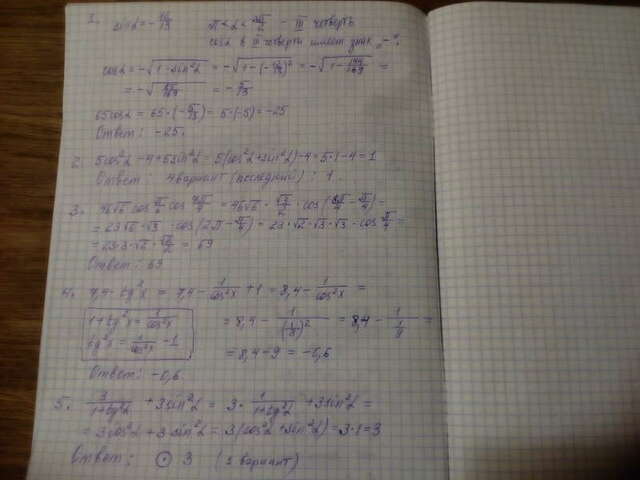 1. sinα = -12/13    π < α < 3π/2 - III четверть
cosα в III четверти имеет знак „-".
cosα = -√(1-sin²α) = -√(1-(-12/13)²) = -√(1-144/169) =
= -√(25/169) = -5/13
65cosα = 65·(-5/13) = 5·(-5) = -25
Ответ: -25.
2. 5cos²α - 4 + 5sin²α = 5(cos²α + sin²α) - 4 = 5·1 - 4 = 1
Ответ: 4 вариант (последний): 1.
3. 46√6 cos π/6 cos 7π/4 = 46√6 · √3/2 · cos(8π/4 - π/4) =
= 23√6 · √3 · cos(2π - π/4) = 23 · √2 · √3 · √3 · cos π/4 =
= 23·3·√2 · √2/2 = 69
Ответ: 69
4. 7,4 - tg²x = 7,4 - 1/cos²x + 1 = 8,4 - 1/cos²x =
1 + tg²x = 1/cos²x
tg²x = 1/cos²x - 1
= 8,4 - 1/(1/3)² = 8,4 - 1/(1/9) =
= 8,4 - 9 = -0,6
Ответ: -0,6.
5. 3/(1+tg²α) + 3sin²α = 3 · 1/(1+tg²α) + 3sin²α =
= 3cos²α + 3sin²α = 3(cos²α + sin²α) = 3·1 = 3
Ответ: 3 (вариант)